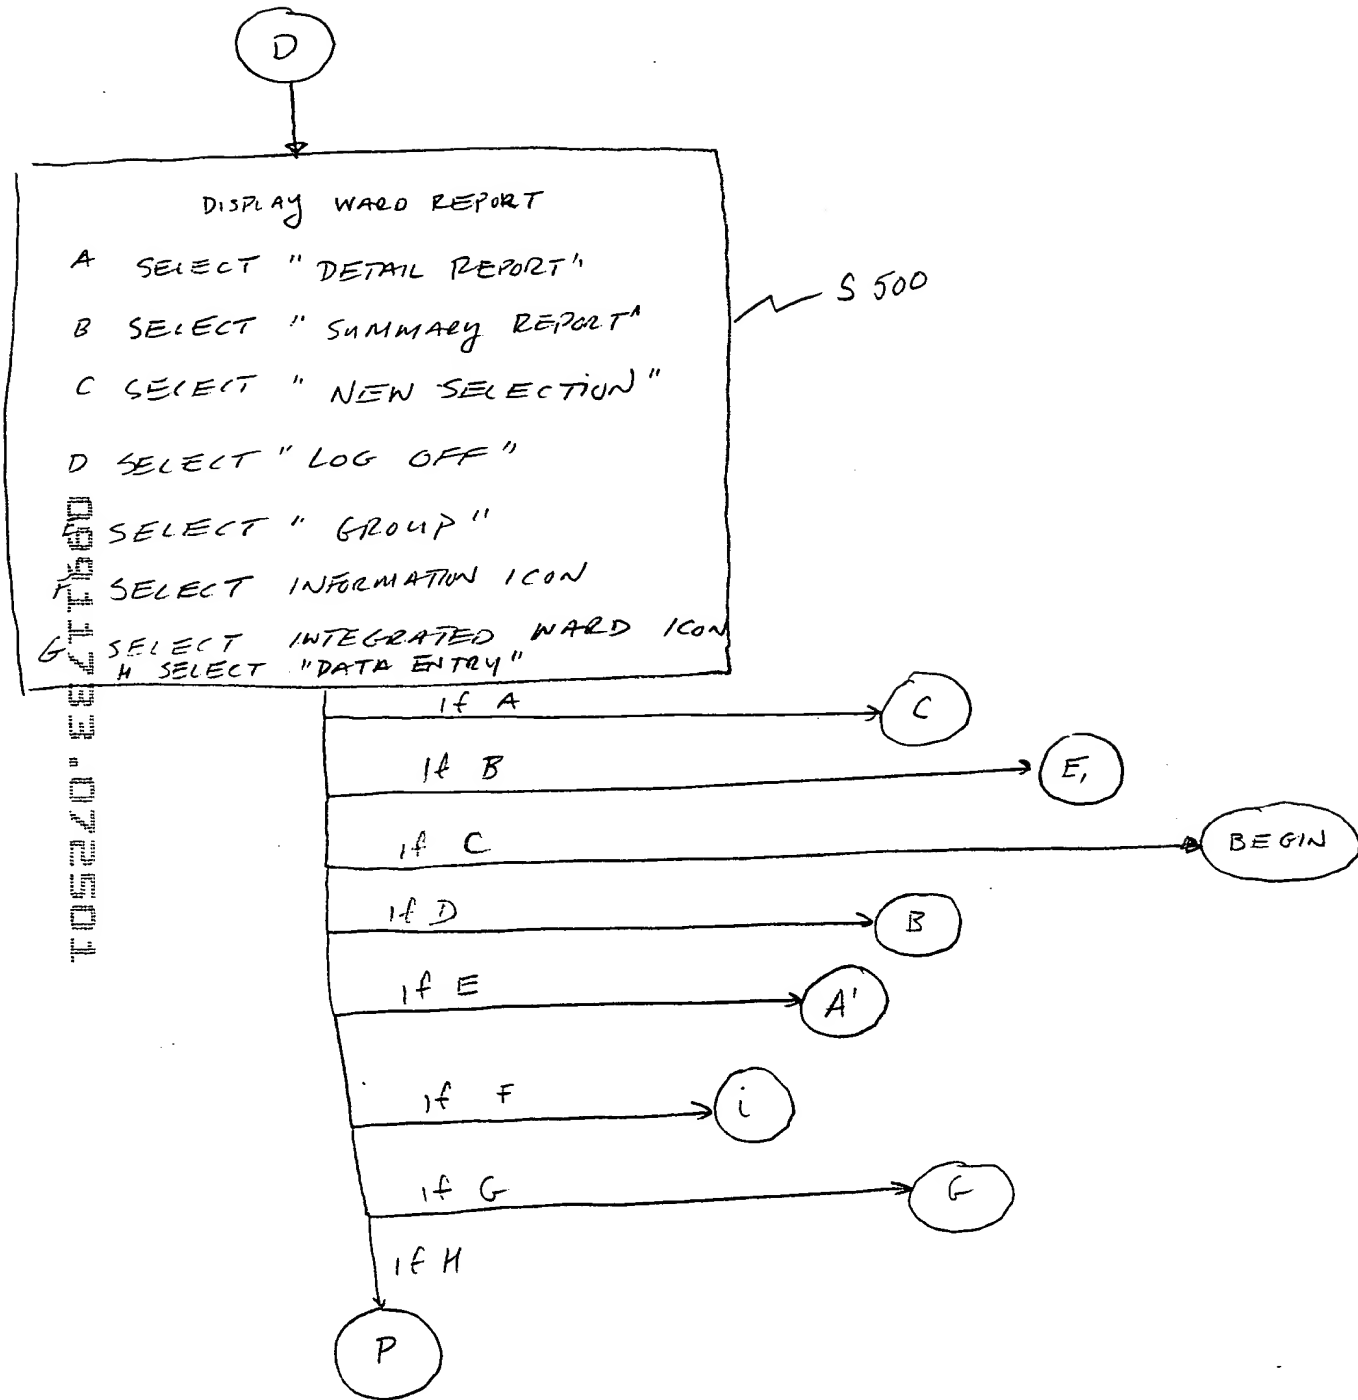 D
DISPLAY WARD REPORT
A SELECT "DETAIL REPORT"
S 500
B SELECT "SUMMARY REPORT"
C SELECT "NEW SELECTION"
D SELECT "LOG OFF"
E SELECT "GROUP"
F SELECT INFORMATION ICON
G SELECT INTEGRATED WARD ICON
H SELECT "DATA ENTRY"
09911733.072501
if A
C
If B
E,
if C
BEGIN
if D
B
if E
A'
if F
i
if G
G
if H
P